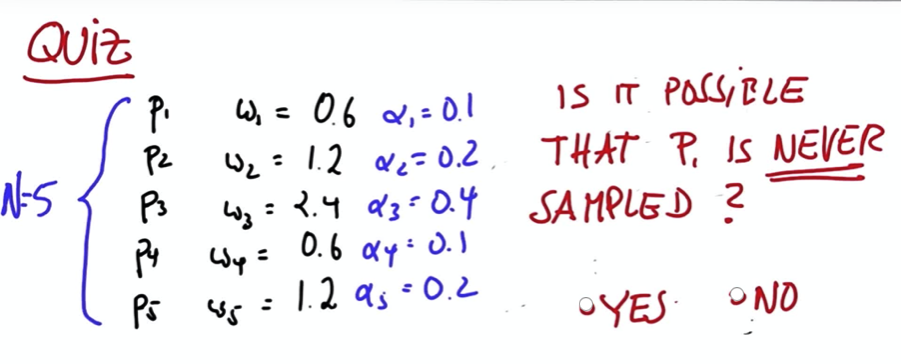 QUiZ
N=5
p1 ω1 = 0.6 α1 = 0.1
p2 ω2 = 1.2 α2 = 0.2
p3 ω3 = 2.4 α3 = 0.4
p4 ω4 = 0.6 α4 = 0.1
p5 ω5 = 1.2 α5 = 0.2
IS IT POSSiBLE
THAT P1 IS NEVER
SAMPLED ?
YES NO